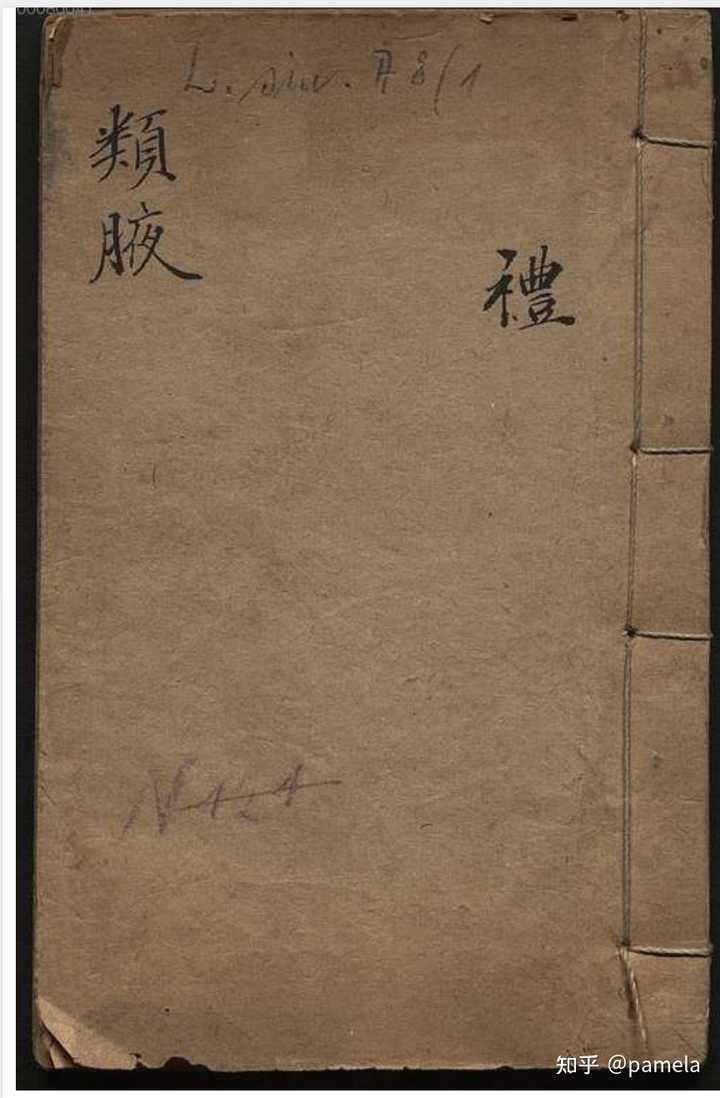 L. sin. A 8/1
類腋
禮
知乎 @pamela